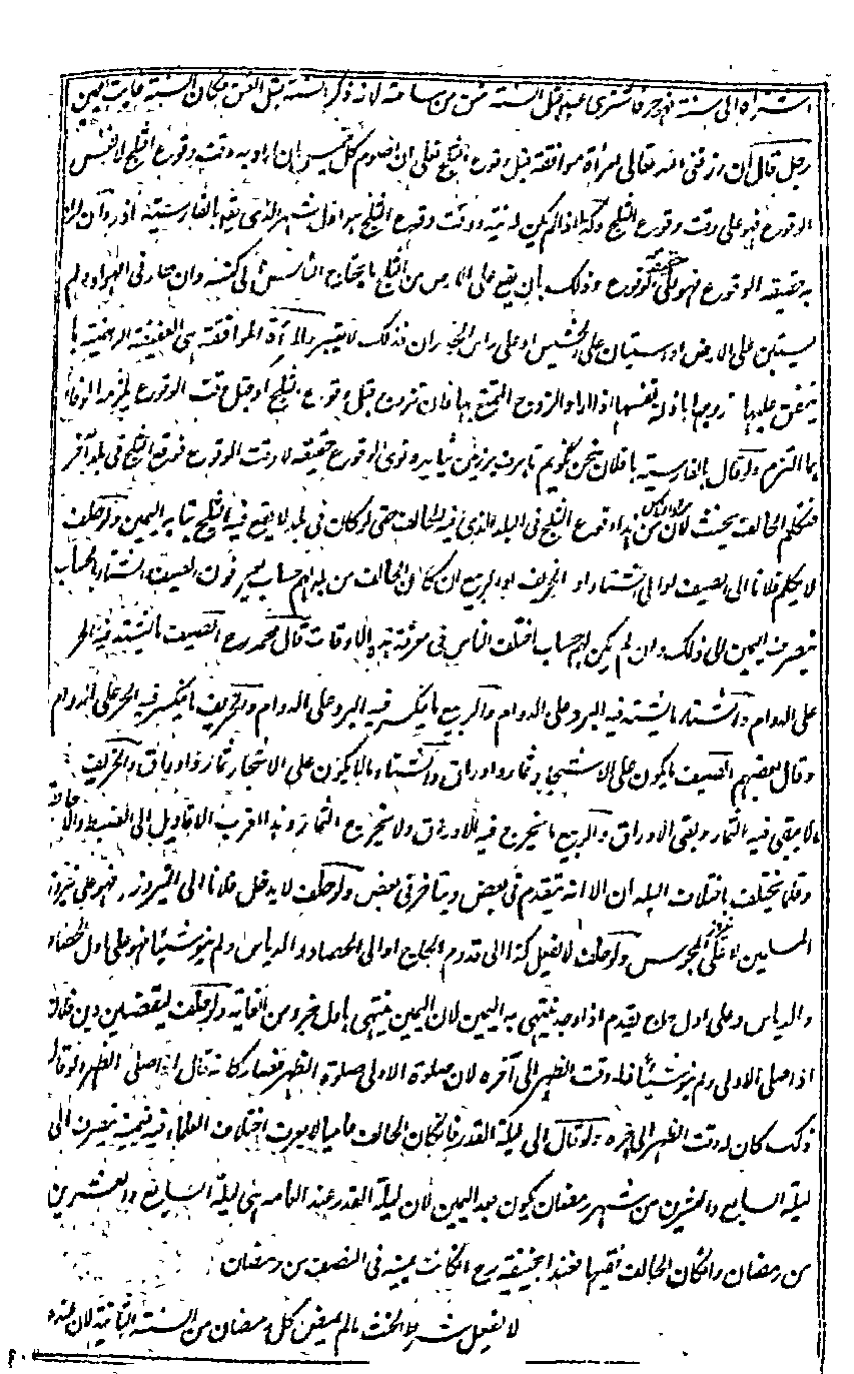 اشتراه الى سنة فهو حر فاشترى عبدا قبل السنة عتق من ساعته لانه ذكر السنة قبل العتق فكان السنة غاية لليمين
رجل قال ان رزقنى الله تعالى امرأة موافقة قبل وقوع الثلج فعلى ان اصوم كل خميس ان اراد به وقت وقوع الثلج لا نفس
الوقوع فهو على وقت وقوع الثلج وكذا اذا لم يكن له نية ووقت وقوع الثلج هو اول شهر الذى يقع بالفارسية آذر وان اراد
به حقيقة الوقوع فهو على حقيقة الوقوع وذلك بان يقع على الارض من الثلج ما يحتاج الناس الى كنسه وان صار فى الهواء ولم
يستبن على الارض او استبان على الحشيش او على راس الجدران فذلك لا يعتبر والمرأة الموافقة هى العفيفة الراضية بما
ينفق عليها زوجها باذلة نفسها اذا اراد الزوج التمتع بها فان تزوج قبل وقوع الثلج او قبل وقت الوقوع يلزمه الوفاء
بما التزم ولو قال بالفارسية با فلان سخن نگويم تا برف بر زمين نيايد ونوى الوقوع حقيقة لا وقت الوقوع فوقع الثلج فى بلد آخر
فتكلم الحالف يحنث لان وقوع الثلج فى البلد الذى فيه الحالف حتى لو كان فى بلد لا يقع فيه الثلج يتأبد اليمين ولو حلف
لا يكلم فلانا الى الصيف او الى الشتاء او الخريف او الربيع ان كان الحالف من بلد لهم حساب يعرفون الصيف والشتاء بالحساب
ينصرف اليمين الى ذلك وان لم يكن لهم حساب اختلف الناس فى معرفة هذه الاوقات قال محمد رح الصيف ما يشتد فيه الحر
على الدوام والشتاء ما يشتد فيه البرد على الدوام والربيع ما ينكسر فيه البرد على الدوام والخريف ما ينكسر فيه الحر على الدوام
وقال بعضهم الصيف ما يكون على الاشجار ثمار واوراق والشتاء ما لا يكون على الاشجار ثمار واوراق والخريف
ما لا يبقى فيه الثمار وبقى الاوراق والربيع ما يخرج فيه الاوراق ولا يخرج الثمار وهذا اقرب الاقاويل الى الضبط والاحاطة
وقلما يختلف باختلاف البلدان الا انه يتقدم فى بعض ويتاخر فى بعض ولو حلف لا يدخل فلانا الى النيروز فهو على نيروز
المسلمين لا على نيروز المجوس ولو حلف لا يفعل كذا الى قدوم الحاج او الى الحصاد والدياس ولم ينو شيئا فهو على اول الحصاد
والدياس وعلى اول حاج يقدم اذا وجد ينتهى به اليمين لان اليمين ينتهى باول جزء من الغاية ولو حلف ليقضين دين فلان
اذا صلى الاولى ولم ينو شيئا فله وقت الظهر الى آخره لان صلوة الاولى صلوة الظهر فصار كانه قال اذا صلى الظهر ولو قال
ذلك كان له وقت الظهر الى آخره ولو قال الى ليلة القدر فان كان الحالف عاميا لا يعرف اختلاف العلماء فيه فيمينه ينصرف الى
ليلة السابع والعشرين من شهر رمضان يكون بعد اليمين لان ليلة القدر عند العامة هى ليلة السابع والعشرين
من رمضان وان كان الحالف فقيها فعند ابى حنيفة رح ان كانت يمينه فى النصف من رمضان
لا يفعل لا يحنث ما لم يمض كل رمضان من السنة الثانية لان عنده